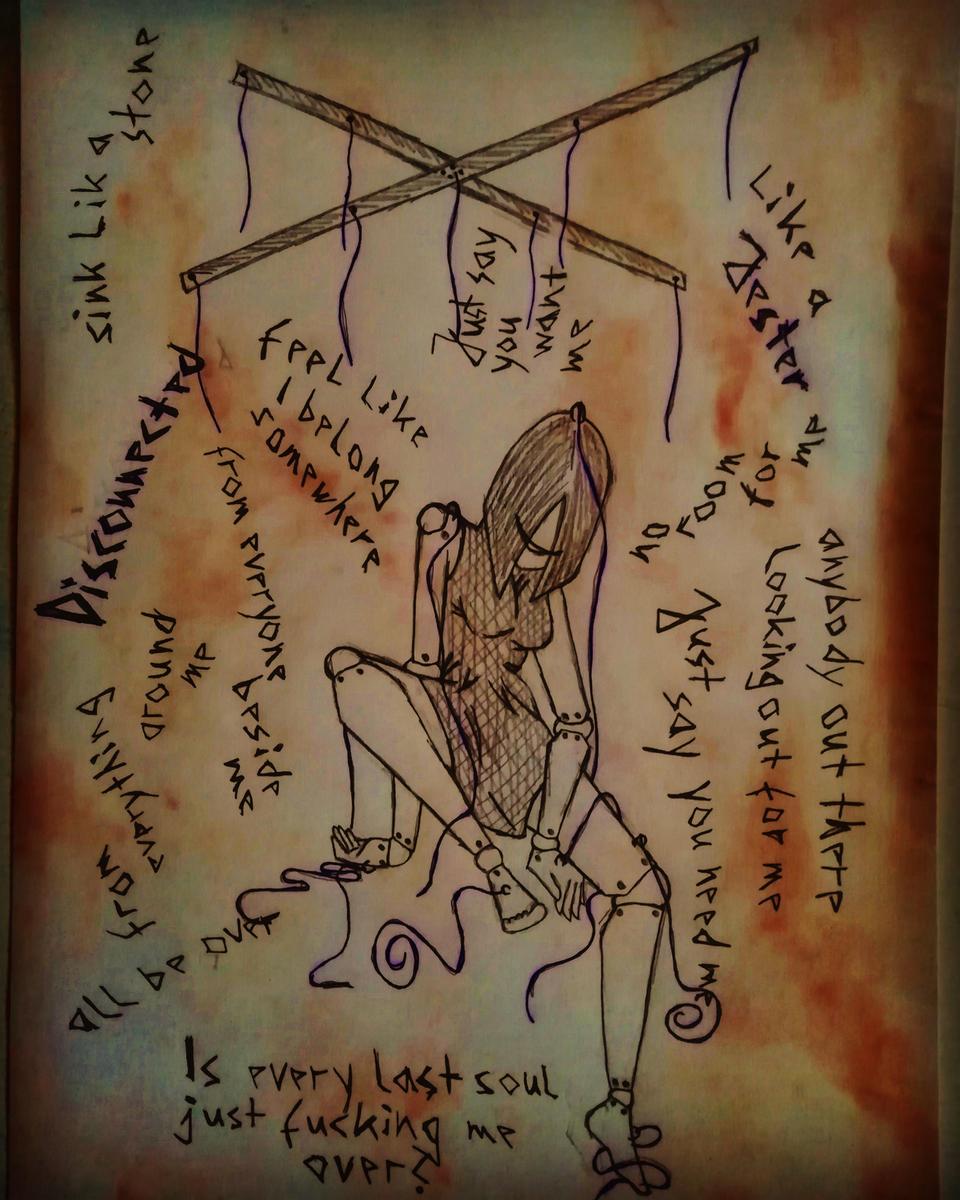 sink Lik a
stone
Just say
you
want
me
Like a
Jester
no room
for
me
Feel Like
I belong
somewhere
Disconnected
from everyone beside
me
from everything
around
me
All be over
Just say you need me
anybody out there
Looking out for me
Is every last soul
just fucking me
over?